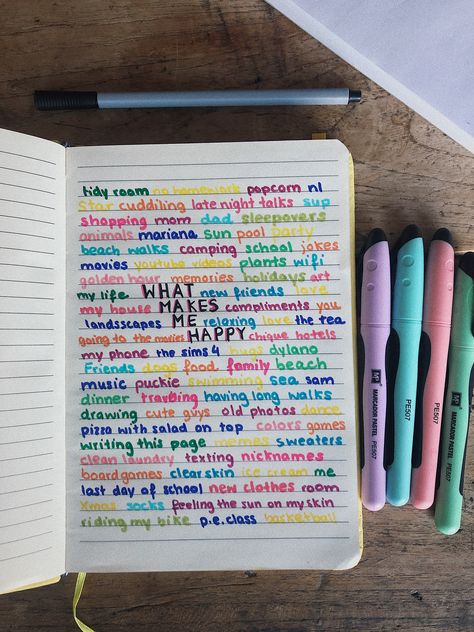 tidy room no homework popcorn nl
Star cuddiling late night talks sup
shopping mom dad sleepovers
animals mariana sun pool party
beach walks camping school jokes
movies youtube videos plants wifi
golden hour memories holidays art
my life WHAT new friends love
my house MAKES compliments you
landsscapes ME relaxing love the tea
going to the movies HAPPY chique hotels
my phone the sims 4 hugs dylano
Friends dogs food family beach
music puckie swimming sea sam
dinner traveling having long walks
drawing cute guys old photos dance
pizza with salad on top colors games
writing this page memes sweaters
clean laundry texting nicknames
board games clear skin ice cream me
last day of school new clothes room
Xmas socks feeling the sun on my skin
riding my bike p.e. class basketball
MARCADOR PASTEL PE507
PE507
PE507
MARCADOR PASTEL PE507